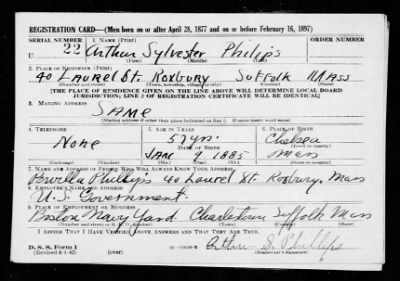 REGISTRATION CARD—(Men born on or after April 28, 1877 and on or before February 16, 1897)
SERIAL NUMBER 1. NAME (Print) ORDER NUMBER
U 22 Arthur Sylvester Philips
(First) (Middle) (Last)
2. PLACE OF RESIDENCE (Print)
40 LAUREL St. ROXBURY SUFFOLK MASS
(Number and street) (Town, township, village, or city) (County) (State)
[THE PLACE OF RESIDENCE GIVEN ON THE LINE ABOVE WILL DETERMINE LOCAL BOARD
JURISDICTION; LINE 2 OF REGISTRATION CERTIFICATE WILL BE IDENTICAL]
3. MAILING ADDRESS
SAME
(Mailing address if other than place indicated on line 2. If same insert word same)
4. TELEPHONE 5. AGE IN YEARS 6. PLACE OF BIRTH
57 yrs. Chelsea
None DATE OF BIRTH
JAN 9 1885 Mass
7. NAME AND ADDRESS OF PERSON WHO WILL ALWAYS KNOW YOUR ADDRESS
Phillips 40 Laurel St. Roxbury, Mass
8. EMPLOYER'S NAME AND ADDRESS
U.S. Government.
9. PLACE OF EMPLOYMENT OR BUSINESS
Boston Navy Yard Charlestown Suffolk Mass
I AFFIRM THAT I HAVE VERIFIED ABOVE ANSWERS AND THAT THEY ARE TRUE.
D. S. S. Form 1
(Revised 4-1-42) (over)
Arthur S. Phillips
(Registrant's signature)